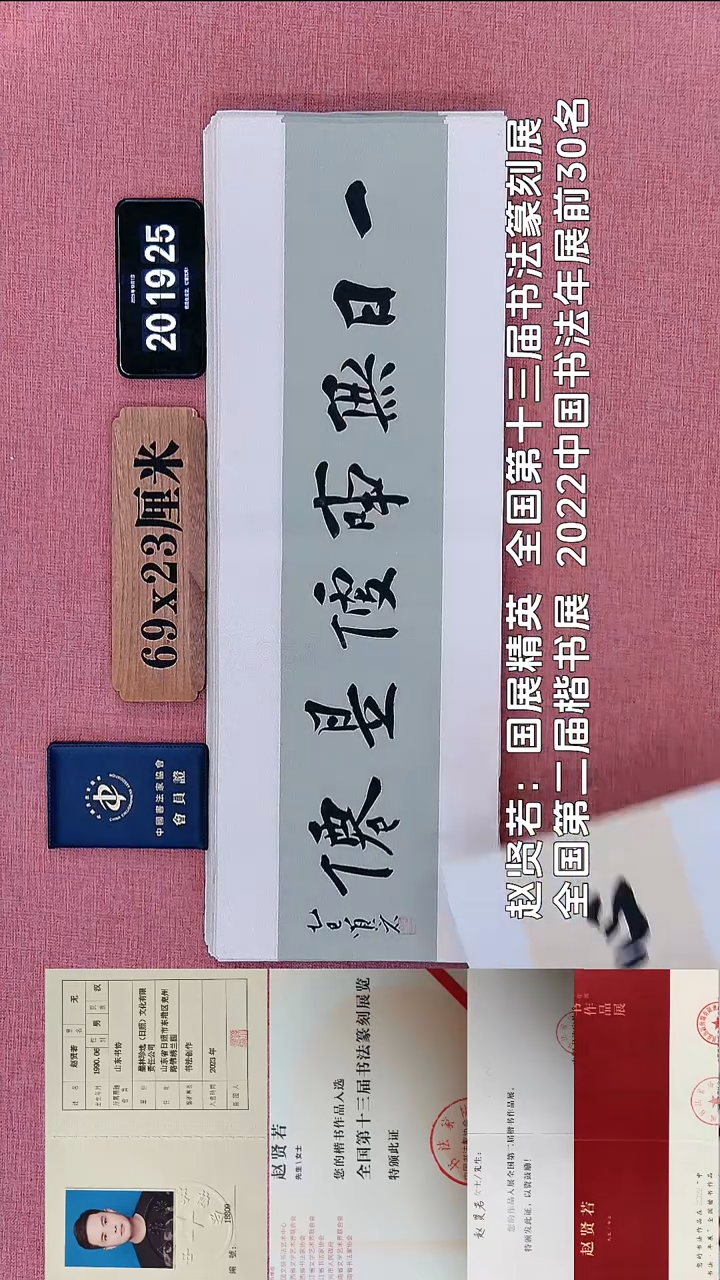 20 19 25
69x23厘米
中國書法家協會
會員證
一日無事便是僊
乙巳賢若
赵贤若：国展精英 全国第十三届书法篆刻展
全国第二届楷书展 2022中国书法年展前30名
姓名 赵贤若 无
出生年月 1990.06 性别 男 民族 汉
山东书协
墨林珍逸（日照）文化有限
责任公司
山东省日照市东港区兖州
路佛桃兰园
书法创作
2023年
編號：18909
赵贤若
先生\女士
您的楷书作品入选
全国第十三届书法篆刻展览
特颁此证
赵贤若 女士/先生：
您的作品入展全国第二届楷书作品展，
特颁发此证，以资鼓励！
书法
作品
展
赵贤若